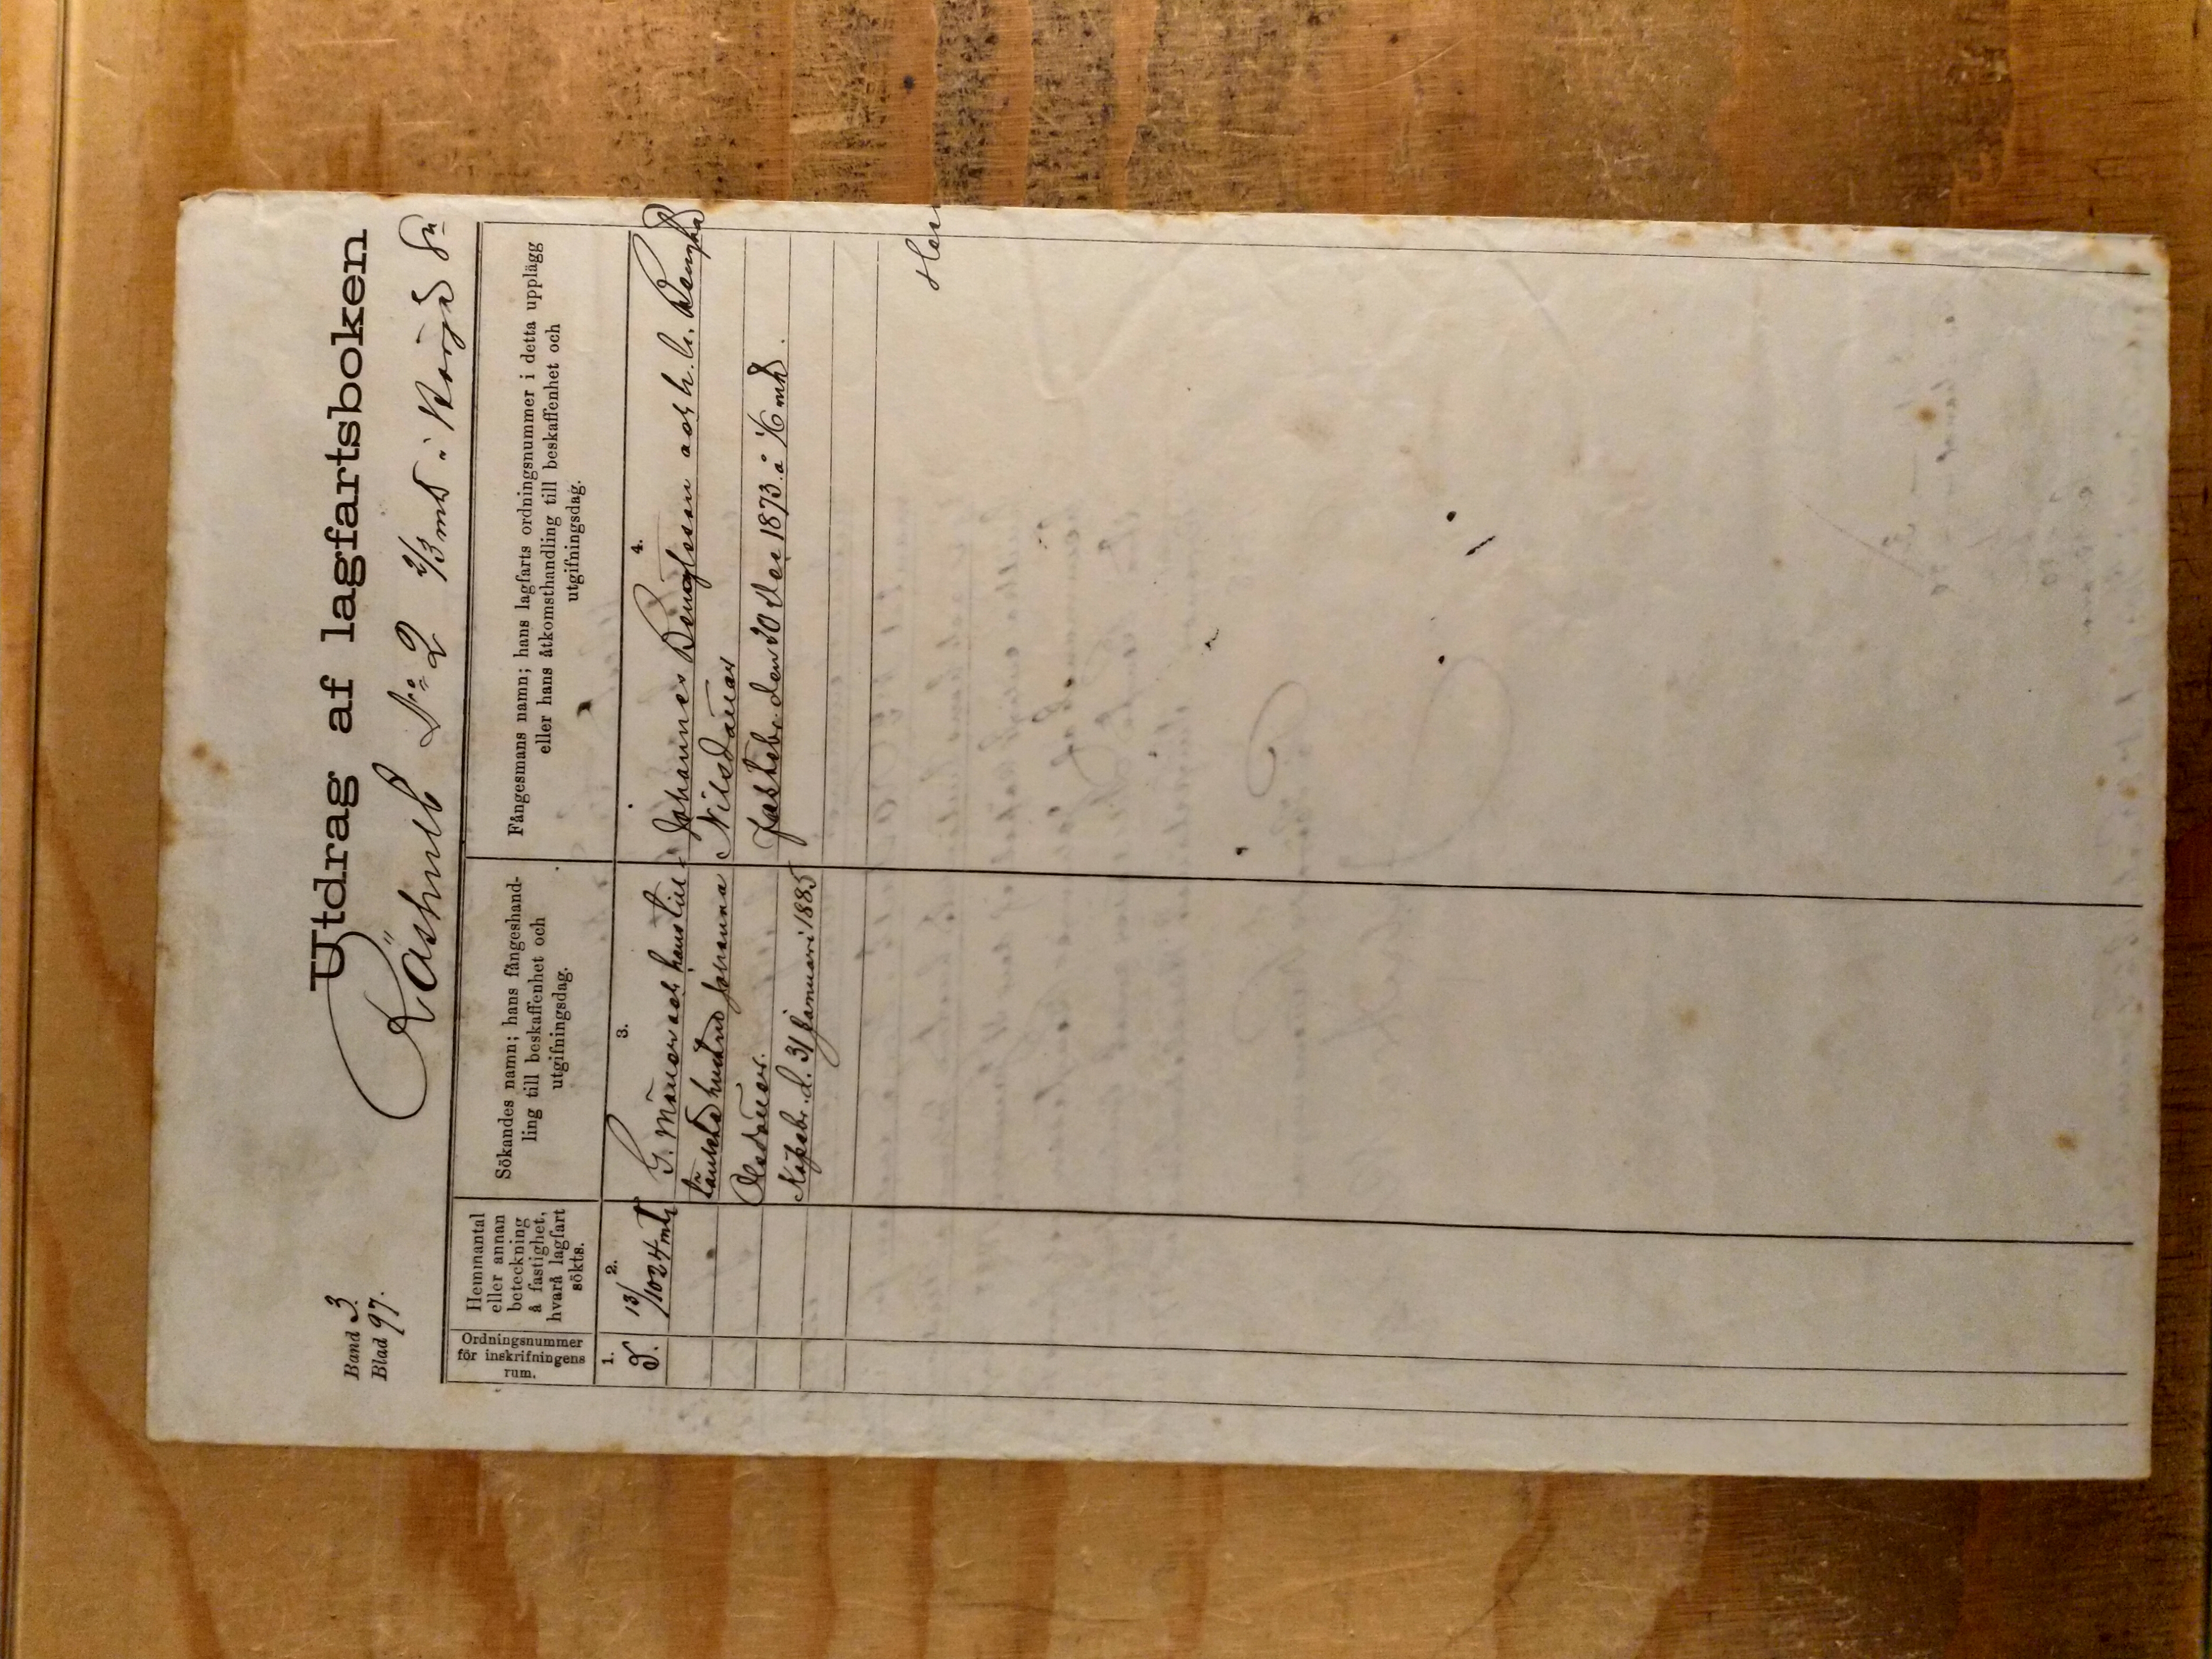 Band 3.
Blad 97.
Utdrag af lagfartsboken
No 2 2/3 mtl i
Ordningsnummer
för inskrifningens
rum.
Hemmantal
eller annan
beteckning
å fastighet,
hvarå lagfart
sökts.
Sökandes namn; hans fångeshand-
ling till beskaffenhet och
utgifningsdag.
Fångesmans namn; hans lagfarts ordningsnummer i detta upplägg
eller hans åtkomsthandling till beskaffenhet och
utgifningsdag.
1.
2.
3.
4.
13/1024 mtl
G. Månsson och hans till-
hustru Johanna
Olsdotter.
Köpebr. d. 31 Januari 1885
Johannes Bengtsson och h. h.
Nilsdotter
Fastebr. den 20 Dec 1873. å 1/6 mtl.